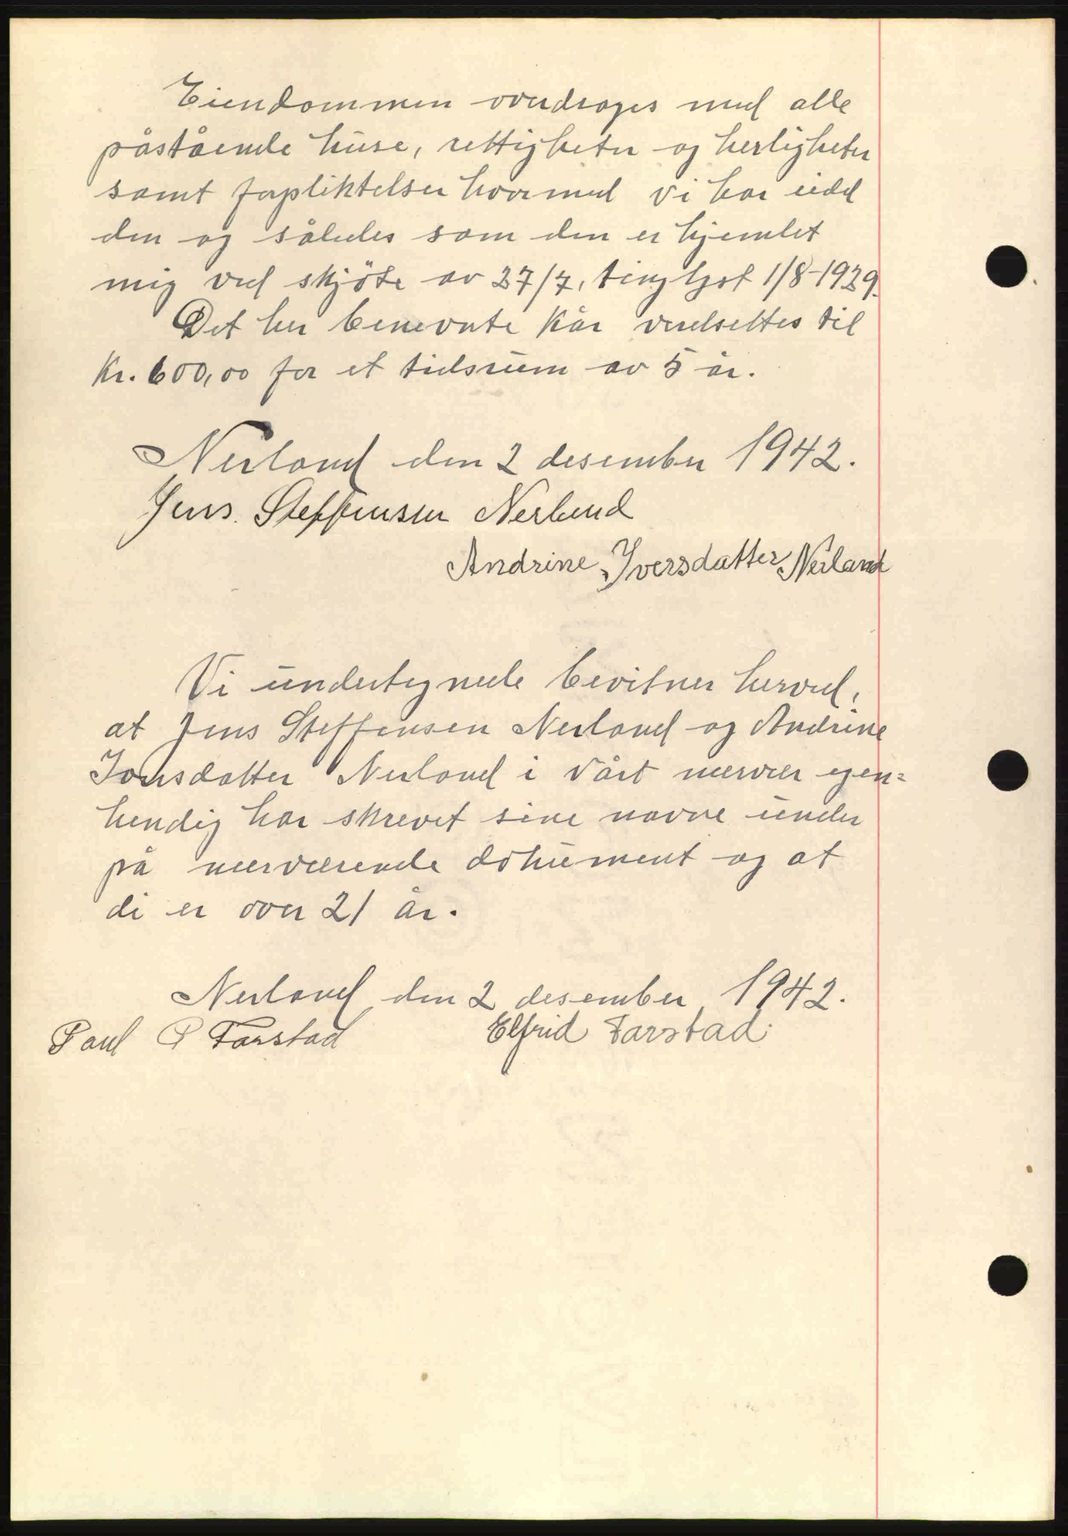 Eiendommen overdrages med alle
påstående huse, rettigheter og herligheter
samt forpliktelser hvormed vi har eidd
den og således som den er hjemlet
mig ved skjöte av 27/7, tinglyst 1/8-1929.
Det her benevnte kår verdsettes til
kr. 600,00 for et tidsrum av 5 år.
Nerland den 2 desember 1942.
Jens Steffensen Nerland
Andrine Iversdatter Nerland
Vi undertegnede bevitner herved,
at Jens Steffensen Nerland og Andrine
Iversdatter Nerland i vårt nærvær egen=
hendig har skrevet sine navne under
på nærværende dokument og at
di er over 21 år.
Nerland den 2 desember 1942.
Paul P Farstad Elfrid Farstad